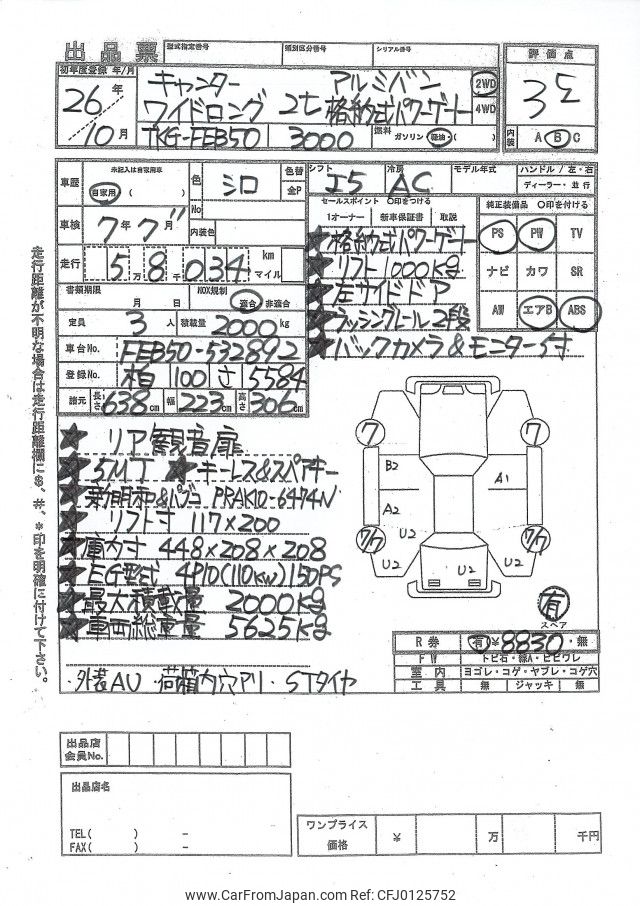 出品票 型式指定番号 類別区分番号 シリアル番号 評価点
初年度登録 年/月
26年 10月
キャンター アルミバン 2WD
ワイドロング 2t 格納式パワーゲート 4WD
TKG-FEB50 3000 燃料 ガソリン・軽油・( )
内装 A B C
車歴 未記入は自家用車 自家用 ( ) 色 シロ 色替 金P
No
シフト I5 冷房 AC モデル年式 ハンドル / 左・右
ディーラー・並行
車検 7年 7月 内装色
走行 5万8千034 km マイル
書類期限 月 日 NOX規制 適合 非適合
定員 3人 積載量 2000kg
車台No. FEB50-532892
登録No. 柏 100 さ 5584
諸元 長さ 638cm 幅 223cm 高さ 306cm
セールスポイント ○印をつける
1オーナー 新車保証書 取説
★格納式パワーゲート
★リフト1000kg
★左サイドドア
★ラッシングレール2段
★バックカメラ&モニター付
純正装備品 ○印を付ける
PS PW TV
ナビ カワ SR
AW エアB ABS
★リア観音扉
★5MT ★キーレス&スペアキー
★新明和&パブコ PRAK10-6474N
★リフト寸 117×200
★庫内寸 448×208×208
★EG型式 4P10(110kw)150PS
★最大積載量 2000kg
★車両総重量 5625kg
・外装AU ・荷箱内穴アリ ・STタイヤ
走行距離が不明な場合は走行距離欄に$、#、*印を明確に付けて下さい。
7 7
B2 A1
A2
7/7 U2 U2 7/7
U2 U2 U2
有
スペア
R券 有 ¥8830・無
FW トビ石・線A・ヒビワレ
室内 ヨゴレ・コゲ・ヤブレ・コゲ穴
工具 無 ジャッキ 無
出品店
会員No.
出品店名
TEL( ) -
FAX( ) -
ワンプライス
価格 ¥ 万 千円
www.CarFromJapan.com Ref: CFJ0125752